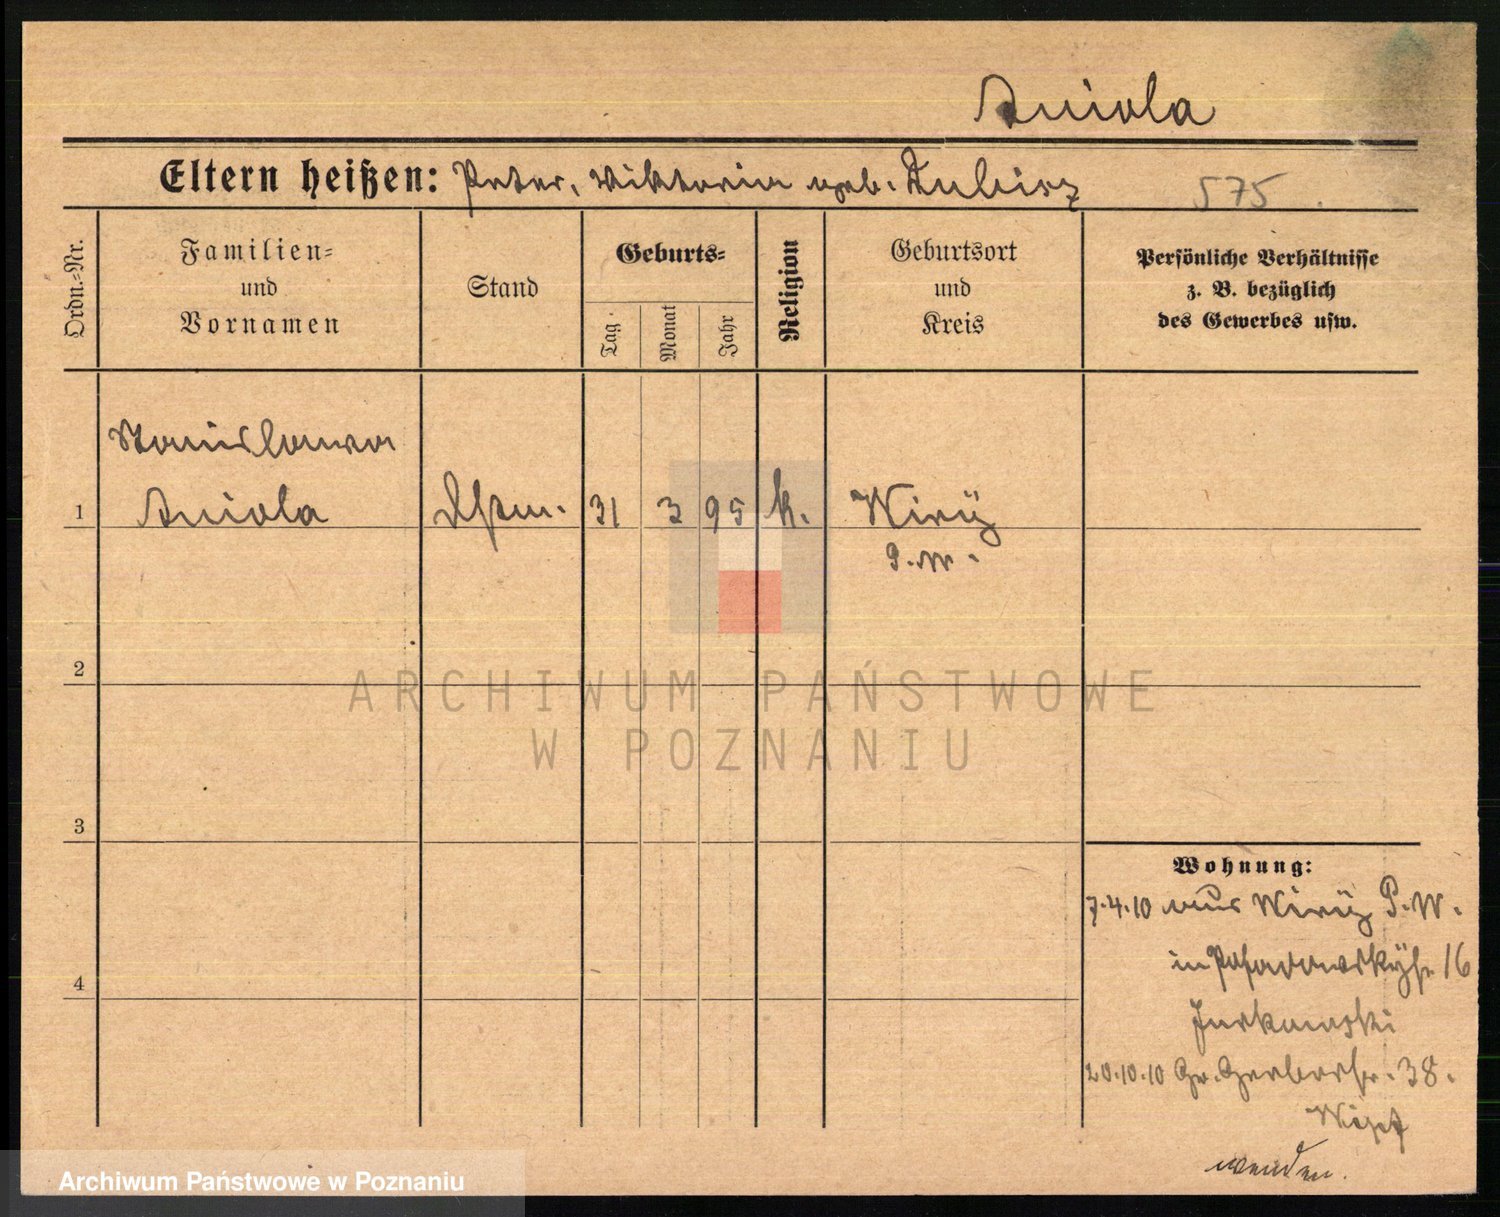 Aniola
Eltern heißen: Peter, Viktoria geb.
575
Ordn.-Nr.
Familien-
und
Vornamen
Stand
Geburts-
Tag
Monat
Jahr
Religion
Geburtsort
und
Kreis
Persönliche Verhältnisse
z. B. bezüglich
des Gewerbes usw.
Stanislawa
1 Aniola 31 3 95 k. Wiry
P. W.
2
ARCHIWUM PAŃSTWOWE
W POZNANIU
3
Wohnung:
7.4.10 aus Wiry P. W.
4
in Posadowskystr 16
Jurkowski
20.10.10 Gr. Gerberstr. 38.
wenden.
Archiwum Państwowe w Poznaniu